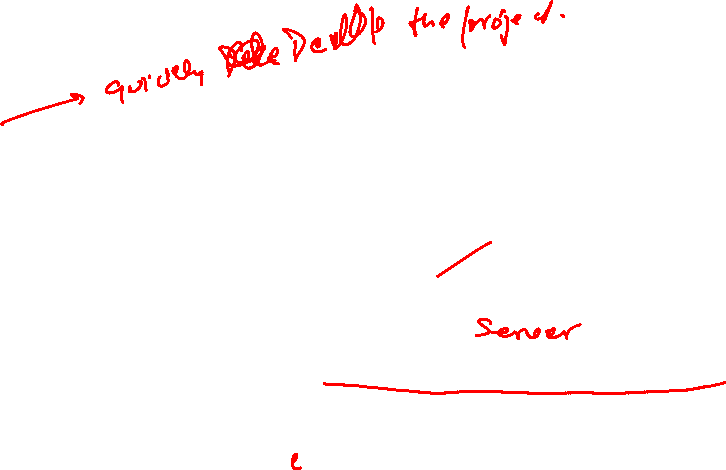 → quickly Develop the project.
Server
e